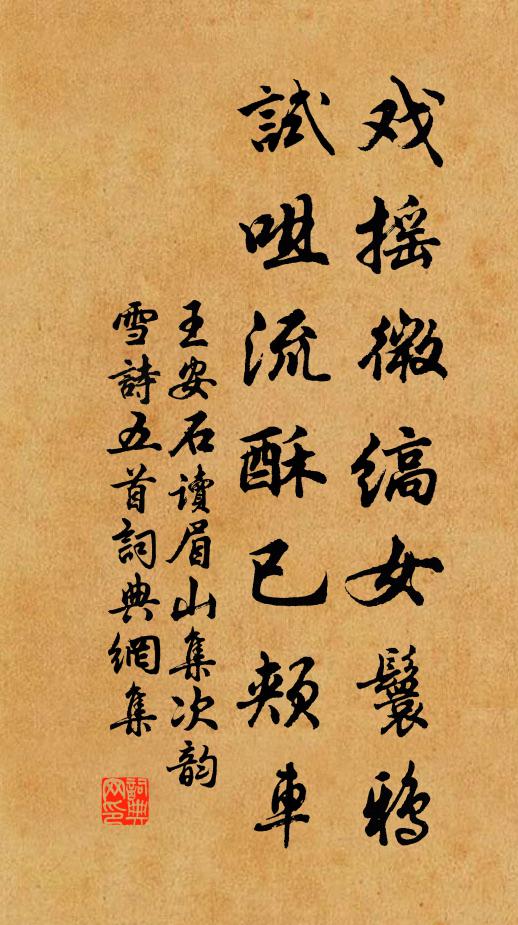 戏摇微缟女鬟鴉
試咀流酥已頰車
王安石讀眉山集次韵
雪詩五首詞典網集
詞典网印